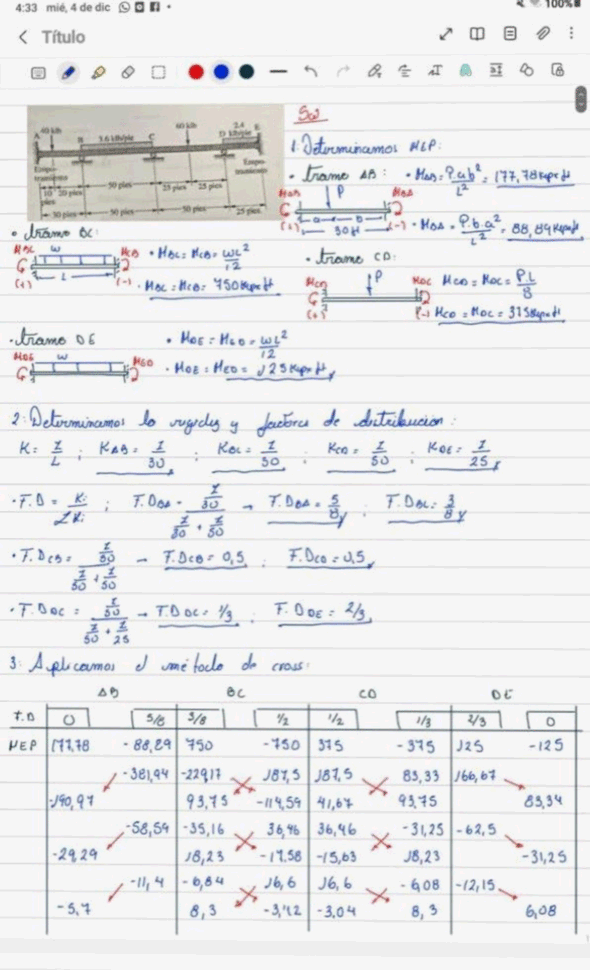 4:33 mié, 4 de dic
100%
Título
40 klb
3.6 klb/pie
60 klb
2.4 klb/pie
A B C D E
Empotramiento
Empotramiento
10 pies 20 pies 50 pies 25 pies 25 pies
30 pies 50 pies 50 pies 25 pies
Sol
1. Determinamos MEP:
• tramo AB: • MAB = P.ab²/L² = 177,78 Kips ft
MAB P MBA
(+) a b (-)
30 ft
• MBA = P.b.a²/L² = 88,89 Kips ft
• tramo BC:
MBC w MCB
(+) L (-)
• MBC = MCB = wL²/12
• MBC = MCB = 750 Kips ft
• tramo CD:
MCD P MDC
(+) (-)
MCD = MDC = P.L/8
MCD = MDC = 375 Kips ft
• tramo DE
MDE w MED
• MDE = MED = wL²/12
• MDE = MED = 125 Kips ft
2. Determinamos la rigidez y factores de distribución:
K = I/L ; KAB = I/30 ; KBC = I/50 ; KCD = I/50 ; KDE = I/25
• F.D = Ki/ΣKi ; F.DBA = (I/30)/(I/30 + I/50) → F.DBA = 5/8 ; F.DBC = 3/8
• F.DCB = (I/50)/(I/50 + I/50) → F.DCB = 0,5 ; F.DCD = 0,5
• F.DDC = (I/50)/(I/50 + I/25) → F.DDC = 1/3 ; F.DDE = 2/3
3. Aplicamos el método de cross:
AB BC CD DE
F.D 0 5/8 3/8 1/2 1/2 1/3 2/3 0
MEP 177,78 -88,89 750 -750 375 -375 125 -125
-381,94 -229,17 187,5 187,5 83,33 166,67
-190,97 93,75 -114,59 41,67 93,75 83,34
-58,59 -35,16 36,46 36,46 -31,25 -62,5
-29,29 18,23 -17,58 -15,63 18,23 -31,25
-11,4 -6,84 16,6 16,6 -6,08 -12,15
-5,7 8,3 -3,42 -3,04 8,3 6,08